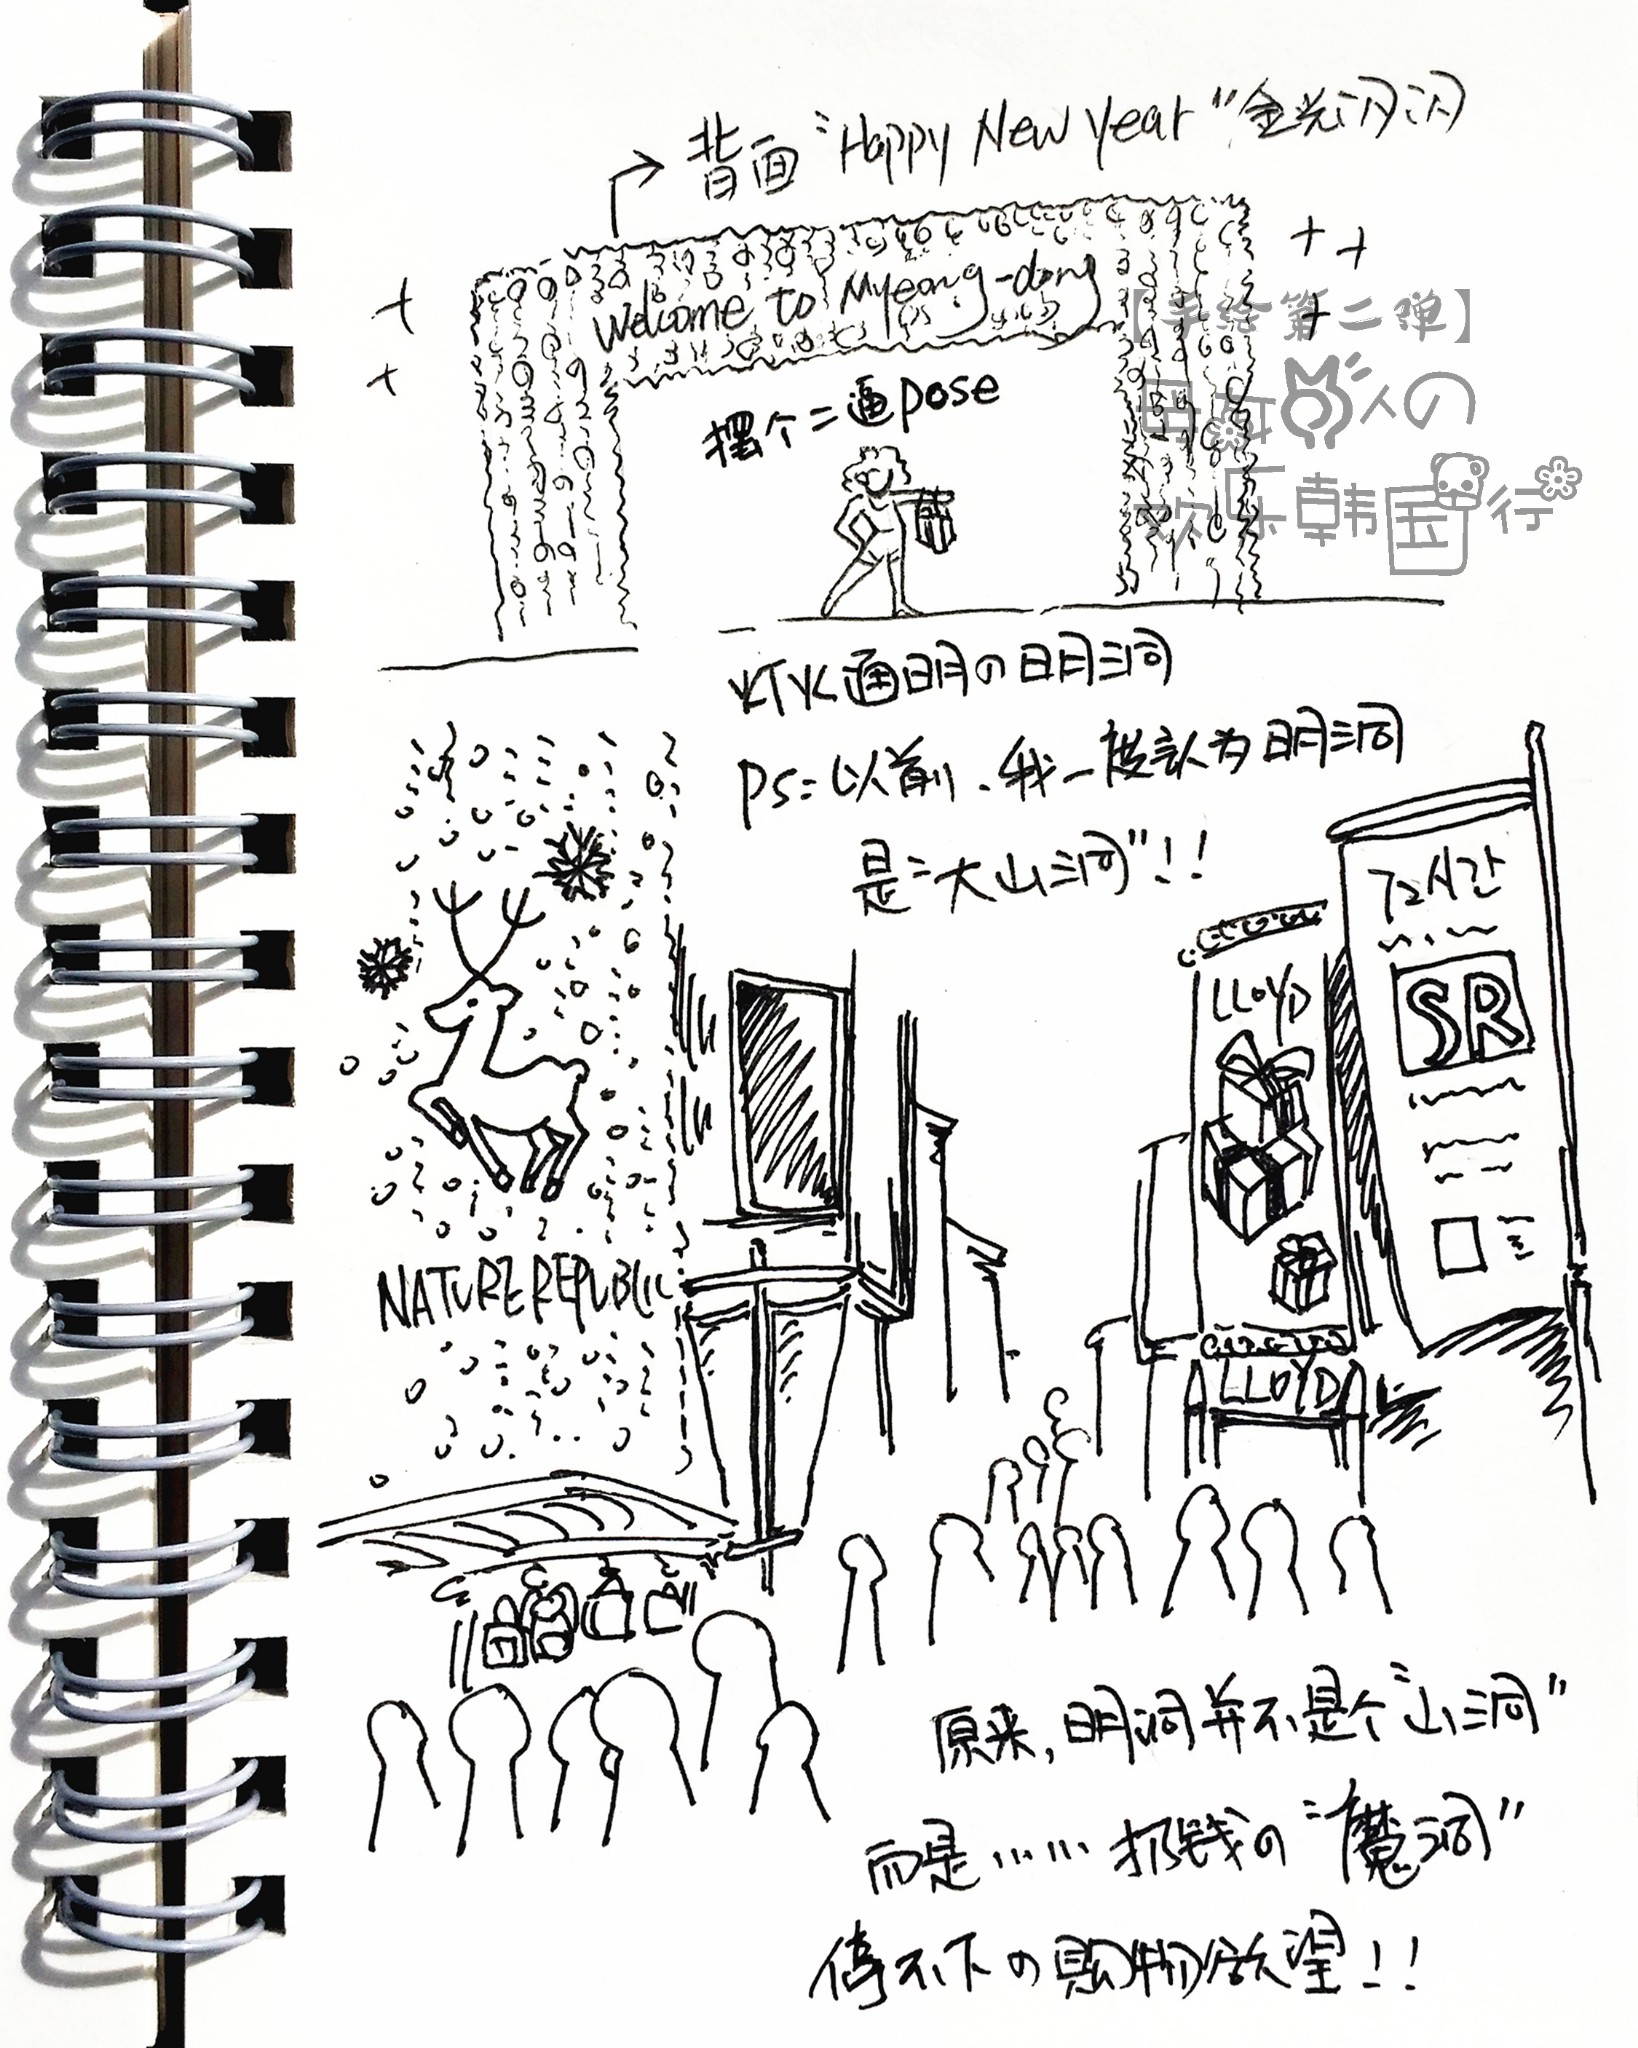 背面“Happy New Year”金光闪闪
Welcome to Myeong-dong
【手绘第二弹】
人の
欢乐韩国行
摆个二逼pose
灯火通明の明洞
PS:以前、我一度认为明洞
是“大山洞”!!
72小时
SR
LLOYD
LLOYD
NATURE REPUBLIC
原来,明洞并不是个“山洞”
而是……扔钱の“魔洞”
停不下の购物欲望!!